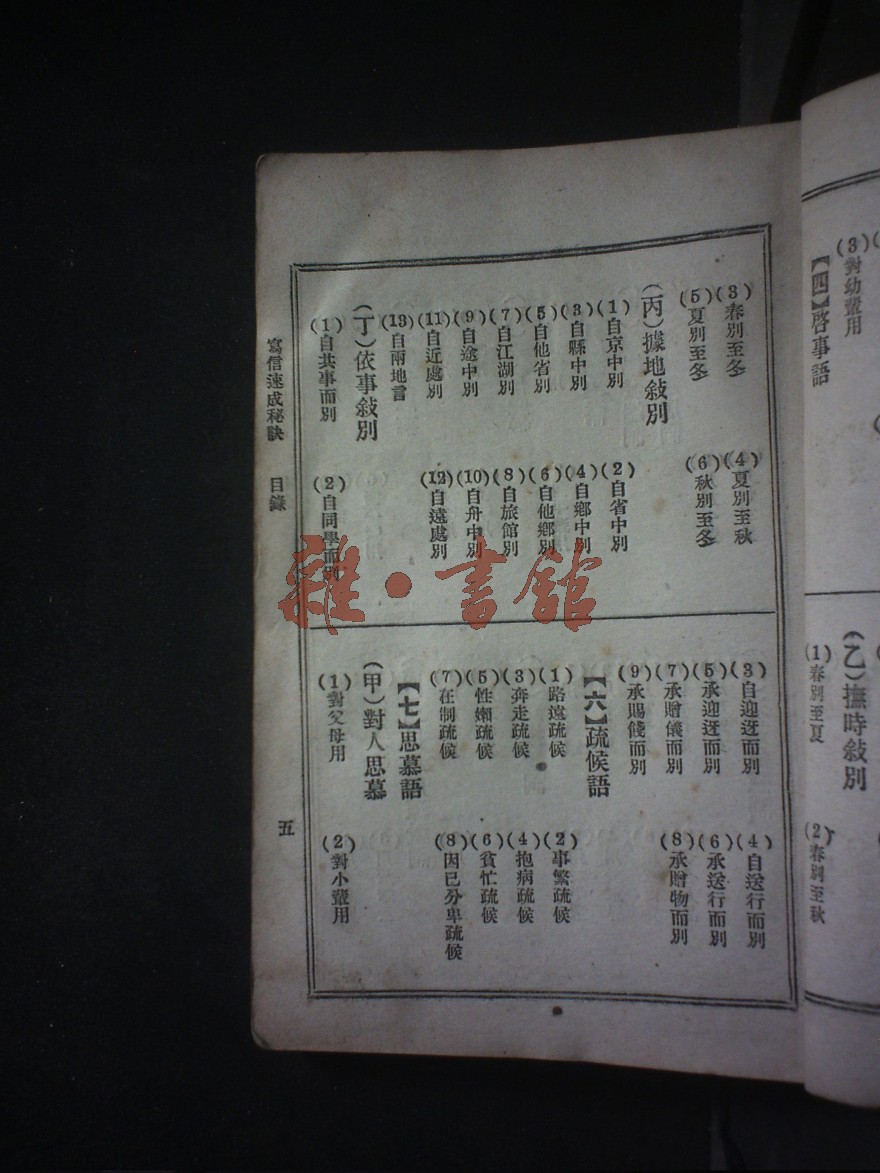 (3)對幼輩用
【四】啓事語
(乙)撫時敍別
(1)春別至夏
(2)春別至秋
(3)春別至冬
(4)夏別至秋
(5)夏別至冬
(6)秋別至冬
(丙)據地敍別
(1)自京中別
(2)自省中別
(3)自縣中別
(4)自鄉中別
(5)自他省別
(6)自他鄉別
(7)自江湖別
(8)自旅館別
(9)自途中別
(10)自舟中別
(11)自近處別
(12)自遠處別
(13)自兩地言
(丁)依事敍別
(1)自共事而別
(2)自同學而別
(3)自迎迓而別
(4)自送行而別
(5)承迎迓而別
(6)承送行而別
(7)承贈儀而別
(8)承贈物而別
(9)承賜餞而別
【六】疏候語
(1)路遠疏候
(2)事繁疏候
(3)奔走疏候
(4)抱病疏候
(5)性嬾疏候
(6)貧忙疏候
(7)在制疏候
(8)因已分卑疏候
【七】思慕語
(甲)對人思慕
(1)對父母用
(2)對小輩用
寫信速成秘訣 目錄
五
雜·書館